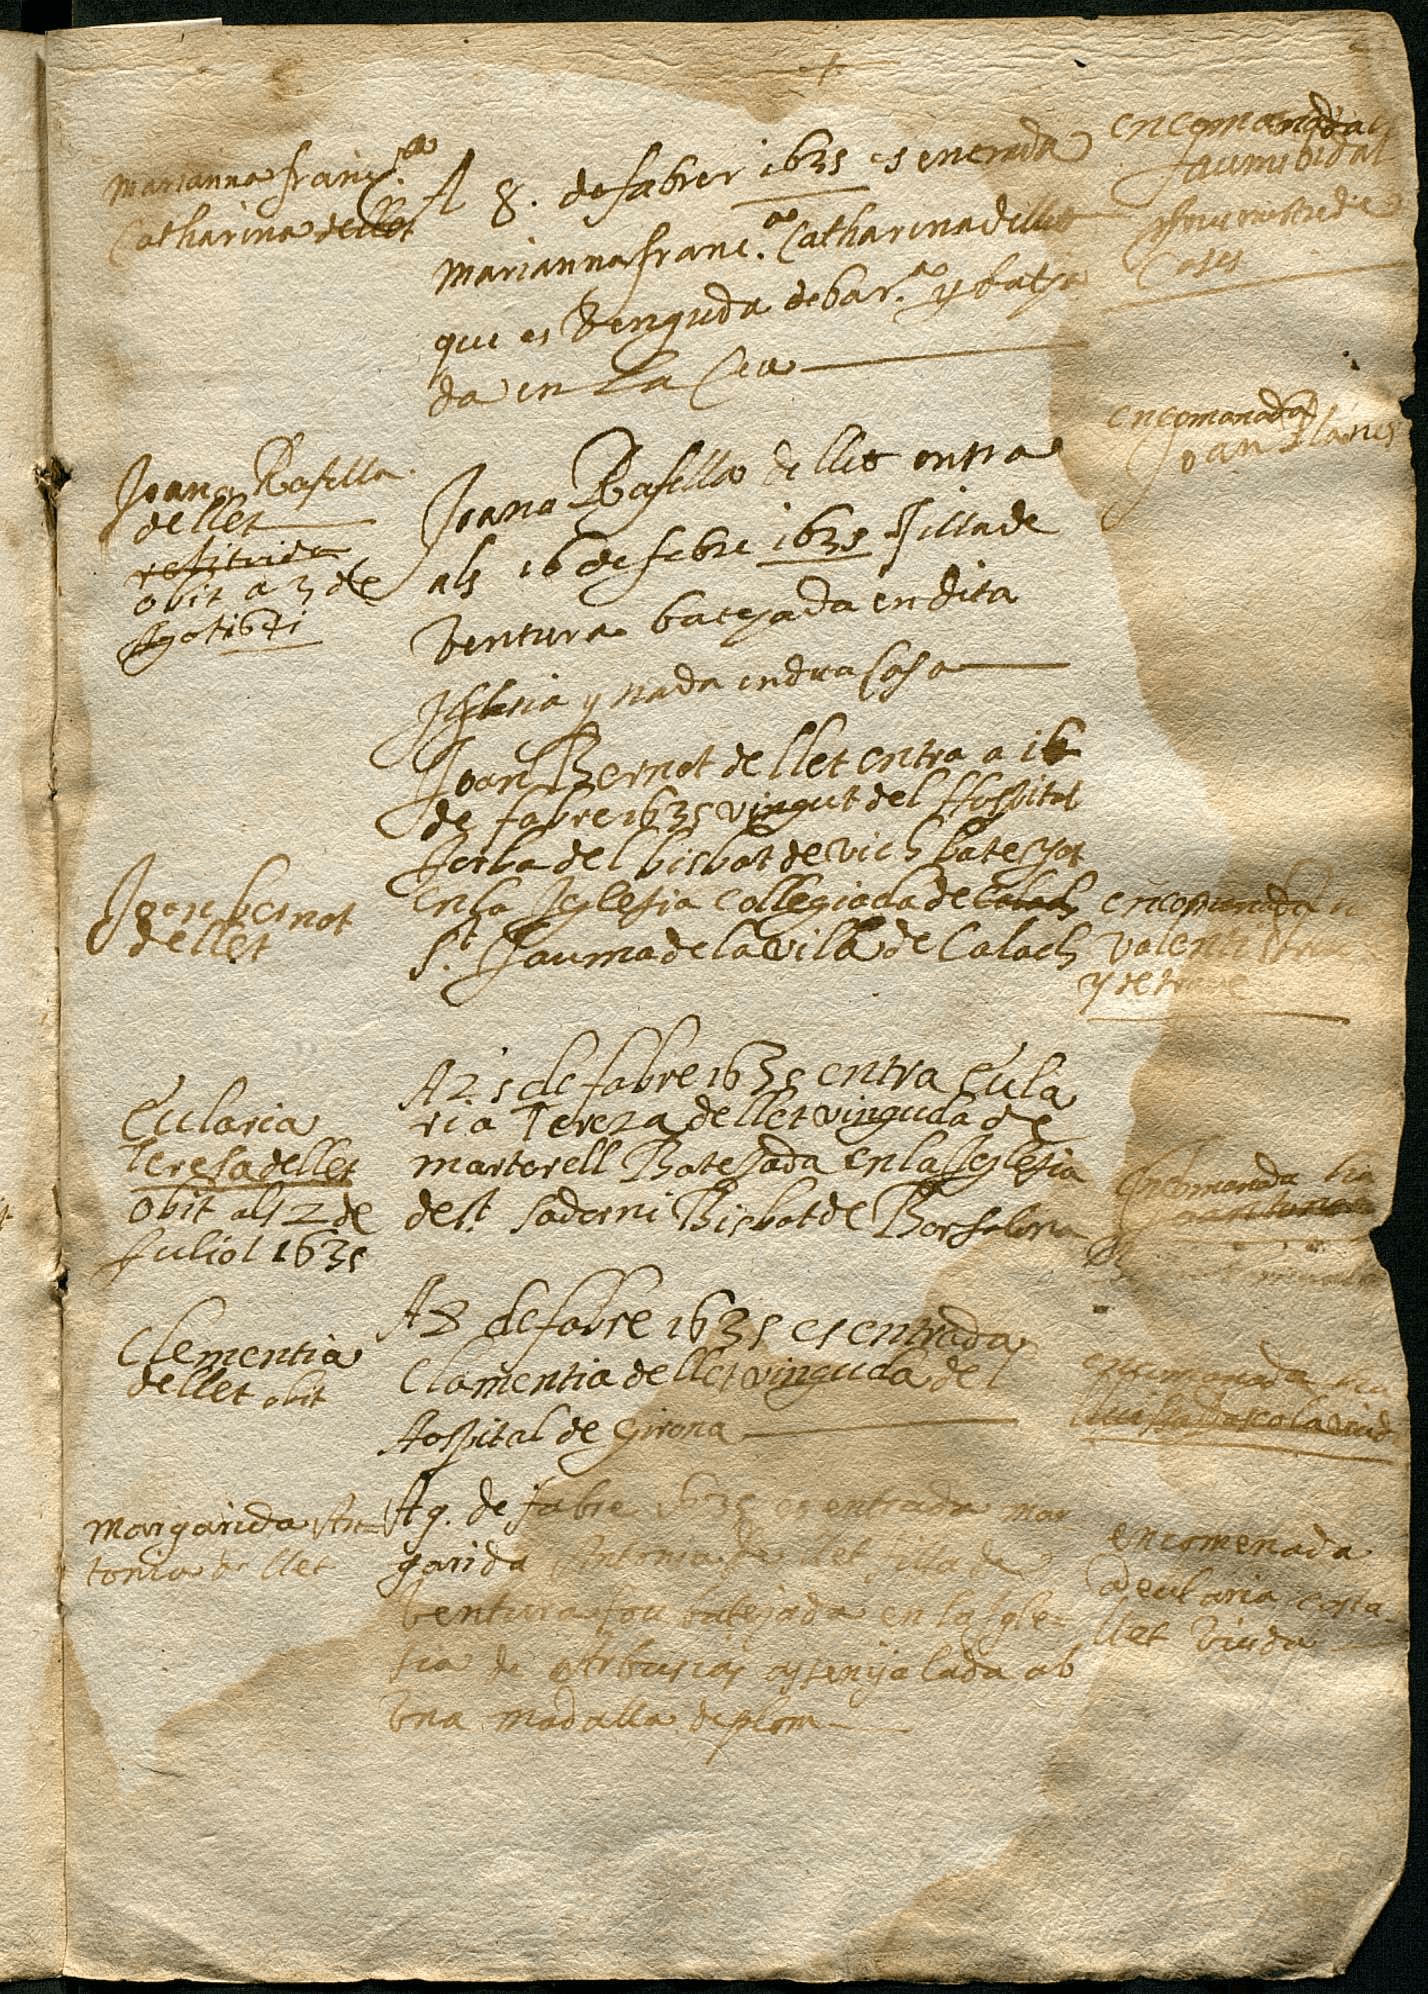 Marianna Franc.ca
Catharina dellet
A 8. de fabrer 1635 es entrada
Marianna franc.ca Catharina dellet
que es Venguda de bar.a y bateja
da en La Ceu
encomanada
Jaume bidal
mestre de
Cases
Joana Rafella
de llet
restituida
obit a 3 de
Agot 1671
Joana Rafella de llet entra
als 16 de febre 1635 filla de
Ventura batejada en dita
Iglesia y nada en dita Casa
encomanada
Joan Planes
Joan bernat
de llet
Joan Bernat de llet entra a 16
de fabre 1635 vingut del Hospital
del bisbat de vich batejat
en la Iglesia collegiada de Calaf
S.t Jauma de la vila de Calaf
encomanda
valenti
y
Eularia
Teresa de llet
obit als 2 de
Juliol 1635
A 25 de fabre 1635 entra Eula
ria Tereza de llet vinguda de
martorell Batejada en la Iglesia
de St. Sadorni Bisbat de Barsalona
Encomanada
Clementia
de llet obit
A 8 de fabre 1635 es entrada
Clamentia de llet vinguda del
Hospital de Girona
encomanada
viuda
Margarida An=
tonia de llet
A 9. de fabre 1635 es entrada mar
garida Antonia de llet filla de
Ventura fou batejada en la Igle=
sia de Arbucias assenyalada ab
Vna madalla de plom
encomenada
a eularia costa
llet Viuda